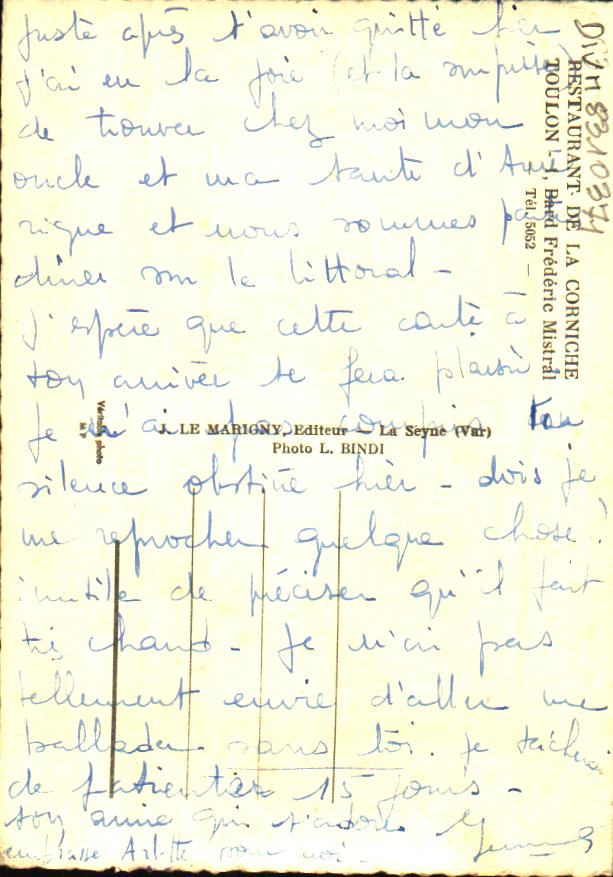 juste après t'avoir quitté hier
j'ai eu la joie (et la surprise)
de trouver chez moi mon
oncle et ma tante d'Amé
rique et nous sommes partis
dîner sur le littoral -
J'espère que cette carte à
ton arrivée te fera plaisir
Je n'ai pas compris ton
silence obstiné hier - dois je
me reprocher quelque chose?
inutile de préciser qu'il fait
très chaud - Je n'ai pas
tellement envie d'aller me
ballader sans toi. je tâcherai
de patienter 15 jours -
ton amie qui t'adore
embrasse Arlette pour moi -
DIVM8310374
RESTAURANT DE LA CORNICHE
TOULON - 1, Bard Frédéric Mistral
Tél. 5052 —
Véritable photo
J. LE MARIGNY, Editeur — La Seyne (Var)
Photo L. BINDI